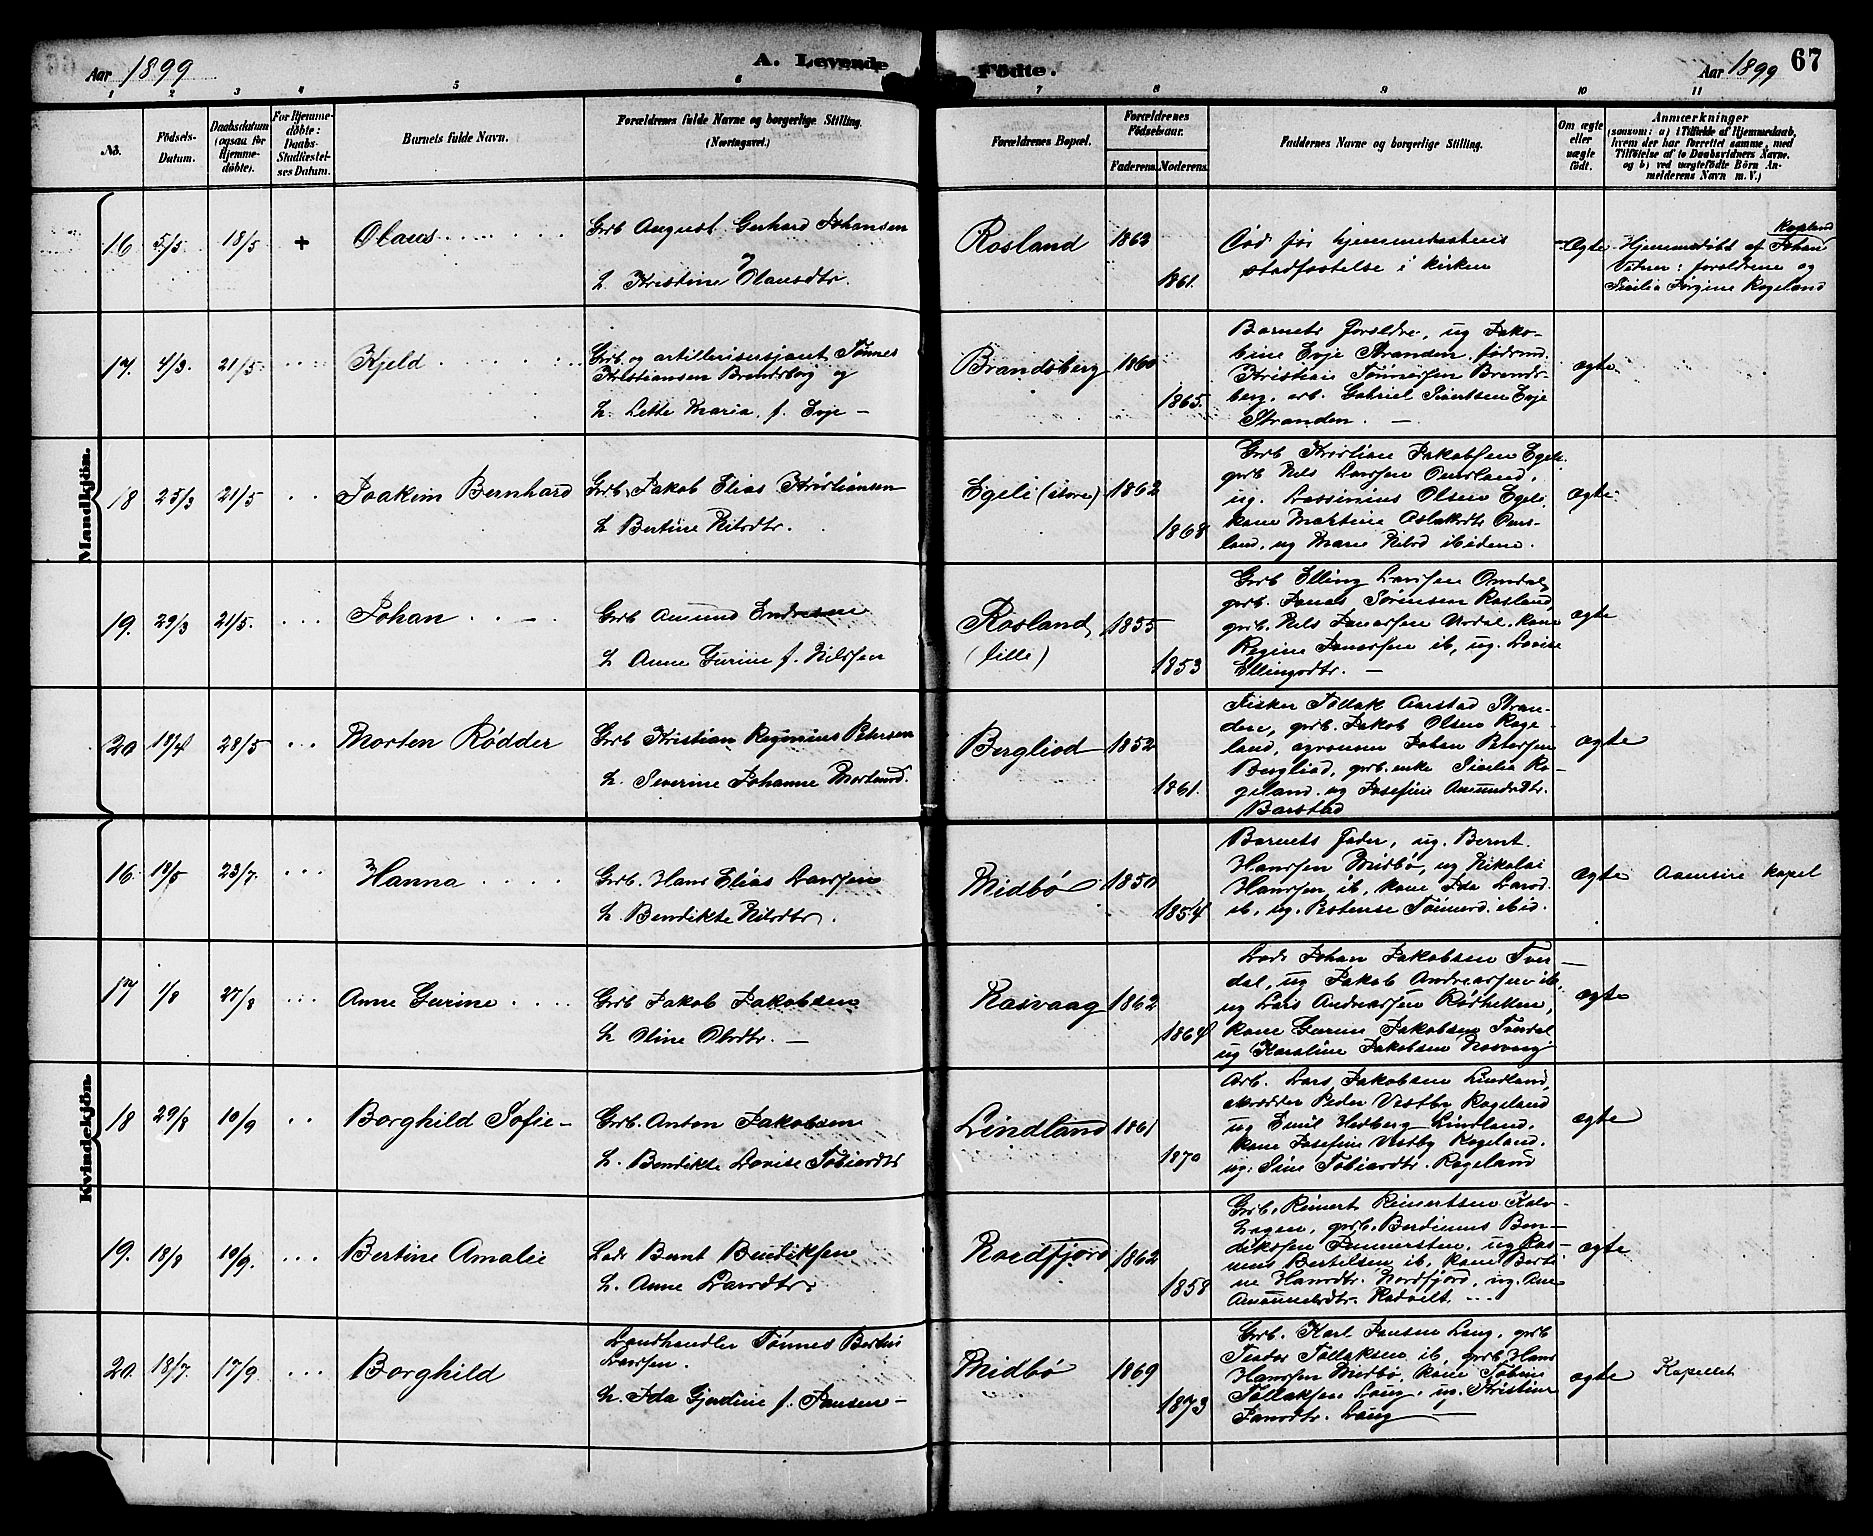 Aar 1899
A. Levende Födte.
Aar 1899
67
1 2 3 4 5 6 7 8 9 10 11
No.
Födsels-
Datum.
Daabsdatum
(ogsaa for
Hjemme-
døbte).
For Hjemme-
døbte:
Daabs-
Stadfæstel-
ses Datum.
Barnets fulde Navn.
Forældrenes fulde Navne og borgerlige Stilling.
(Næringsvei.)
Forældrenes Bopæl.
Forældrenes
Födselsaar.
Faderens. Moderens.
Faddernes Navne og borgerlige Stilling.
Om ægte
eller
uægte
födt.
Anmærkninger
(saasom: a) i Tilfælde af Hjemmedaab,
hvem der har forrettet samme, med
Tilføielse af to Daabsvidners Navne,
og b) ved uægtefødte Börn An-
melderens Navn m. V.)
Mandkjön.
16 5/5 18/5 + Olaus
Grb August Gerhard Johansen
h Kristine Olausdtr.
Rosland 1862 1861.
Død før hjemmedaabens
stadfæstelse i kirken
Ægte
Rageland
Hjemmedöbt af Johan
Vitner: forældrene og
Sicilia Jørgine Rageland
17. 4/3. 21/5 Kjeld
Grb og artillerisersjant Tønnes
Kristiansen Brandsberg og
h. Lette Maria f. Evje
Brandsberg 1860 1865.
Barnets forældre, ug Jako-
bine Evje Stranden, födrmd.
Kristian Tönnessen Brands-
berg, arb. Gabriel Sivertsen Evje
Stranden.
ægte
18 25/3 21/5 Joakim Bernhard
Grb. Jakob Elias Kristiansen
h Bertine Nilsdtr.
Egeli (store) 1862 1868
Grb Kristian Jakobsen Egeli
grb Nils Larsen
ug. Olsen Egeli
kone Martine Aslaksdtr
land, ug Marie Nilsd ibidem.
ægte
19. 29/3 21/5. Johan
Grb Amund Endresen
h Anne Gurine f. Nilssen
Rosland
(lille) 1855 1853
Grb Elling Larsen Omdal,
grb. Jonas Sørensen Rosland,
grb. Nils Jonassen Urdal, kone
Regine Jonassen ib, ug. Lovise
Ellingsdtr.
ægte
20 18/4 28/5 Morten Rödder
Grb Kristian Reginius Petersen
h. Severine Johanne Mortensd.
Bergliod 1852 1861.
Fisker Tollak Aarstad Stran-
den, grb. Jakob Olsen Rage-
land, agronom Johan Petersen
Bergliod, grb. enke Sicilia Ra-
geland. ug Josefine Amundsdtr.
Barstad
ægte
Kvindekjön.
16. 18/5 23/7. Hanna
Grb. Hans Elias Larsen
h Bendikte Nilsdtr.
Midbö 1850 1854
Barnets fader, ug. Bernt
Hanssen Midbö, ug Nikolai
Hanssen, ib, kone Ida Larsd.
ib, ug. Tönnesd. ibid.
ægte
Aaensire kapel
17 1/8 27/8 Anne Gurine
Grb Jakob Jakobsen
h Oline Olsdtr.
Rasvaag 1862 1864
Lods Johan Jakobsen Tver-
dal, ug Jakob Andreassen ib,
ug Lars Andreassen
kone Gurine Jakobsen
ug Karoline Jakobsen Rasvaag
ægte
18 29/8 10/9 Borghild Sofie
Grb. Anton Jakobsen
h. Bendikte Lovise Tobiasdtr
Lindland 1861 1870
Arb. Lars Jakobsen Lindland,
skrædder Peder Vestby Rageland
ug Emil Hedberg Lindland,
kone Josefine Vestby Rageland.
ug. Sine Tobiasdtr. Rageland
ægte
19. 18/8 10/9. Bertine Amalie
Lods Bernt Bendiksen
h. Anne Larsdtr.
Nordfjord 1862 1858
Grb. Reinert Reinertsen Kalv-
hagen, grb. Berdinus Ben-
diksen, ug Ras-
mus Bertelsen ib, kone Berti-
ne Hansdtr. Nordfjord, ug. Ane
Amundsdtr.
ægte
20. 18/7. 17/9 Borghild
Landhandler Tönnes Bertin
Larsen.
h. Ida Gjurdine f. Jansen
Midbö 1869 1873
Grb. Karl Jansen Laug, grb
Teodor Tollaksen ib, grb Hans
Hanssen Midbö, kone Tobine
Tollaksen Laug, ug. Kristine
Jansdtr. Laug
ægte
Kapellet